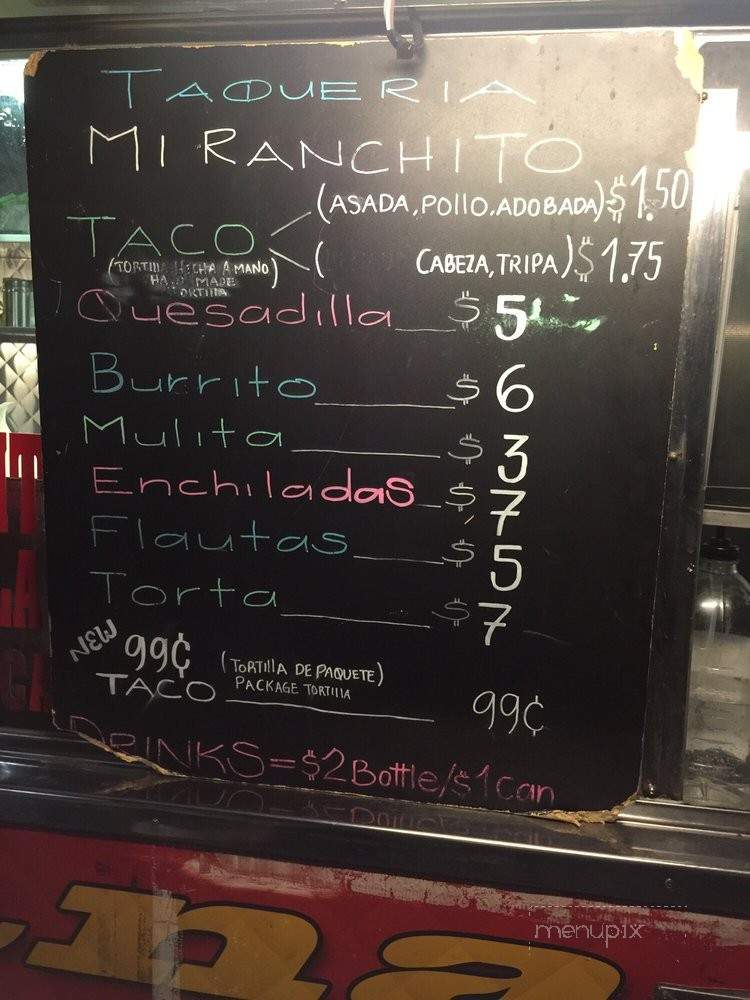 TAQUERIA
MI RANCHITO
(ASADA, POllO, ADOBADA) $1.50
TACO
(TORTIllA HECHA A MANO)
HAND MADE
TORTIllA
(CABEZA, TRIPA) $1.75
Quesadilla $5
Burrito $6
Mulita $3
Enchiladas $7
Flautas $5
Torta $7
NEW 99¢ (TORTIllA DE PAQUETE)
TACO PACKAGE TORTIllA 99¢
DRINKS = $2 Bottle/$1 Can
na
menupix